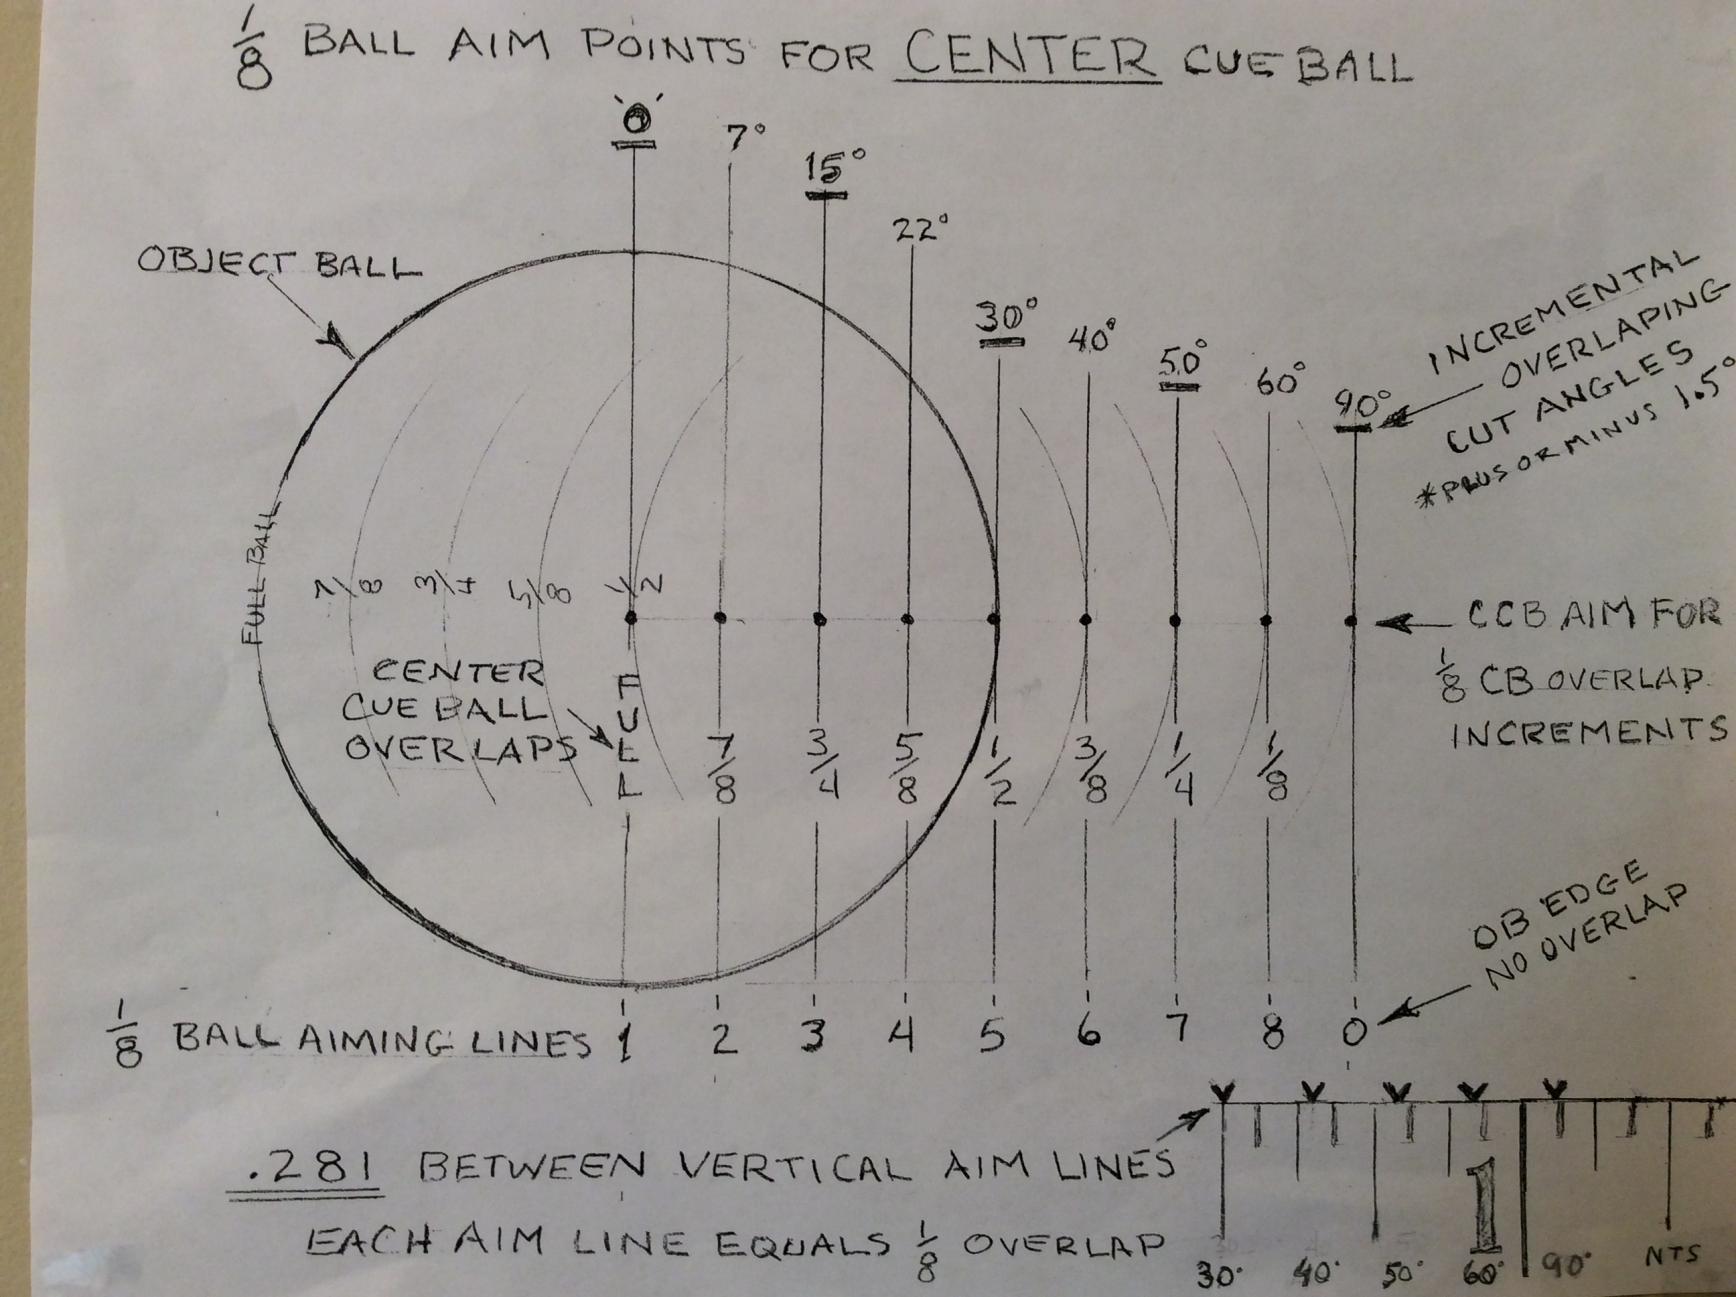 1/8 BALL AIM POINTS FOR CENTER CUE BALL
'0'
7°
15°
22°
30°
40°
50°
60°
90°
OBJECT BALL
INCREMENTAL
OVERLAPING
CUT ANGLES
*PLUS OR MINUS 1.5°
FULL BALL
7/8 3/4 5/8 1/2
CCB AIM FOR
1/8 CB OVERLAP
INCREMENTS
CENTER
CUE BALL
OVERLAPS
FULL
7/8 3/4 5/8 1/2 3/8 1/4 1/8
OB EDGE
NO OVERLAP
1/8 BALL AIMING LINES 1 2 3 4 5 6 7 8 0
.281 BETWEEN VERTICAL AIM LINES
EACH AIM LINE EQUALS 1/8 OVERLAP
1
30° 40° 50° 60° 90° NTS